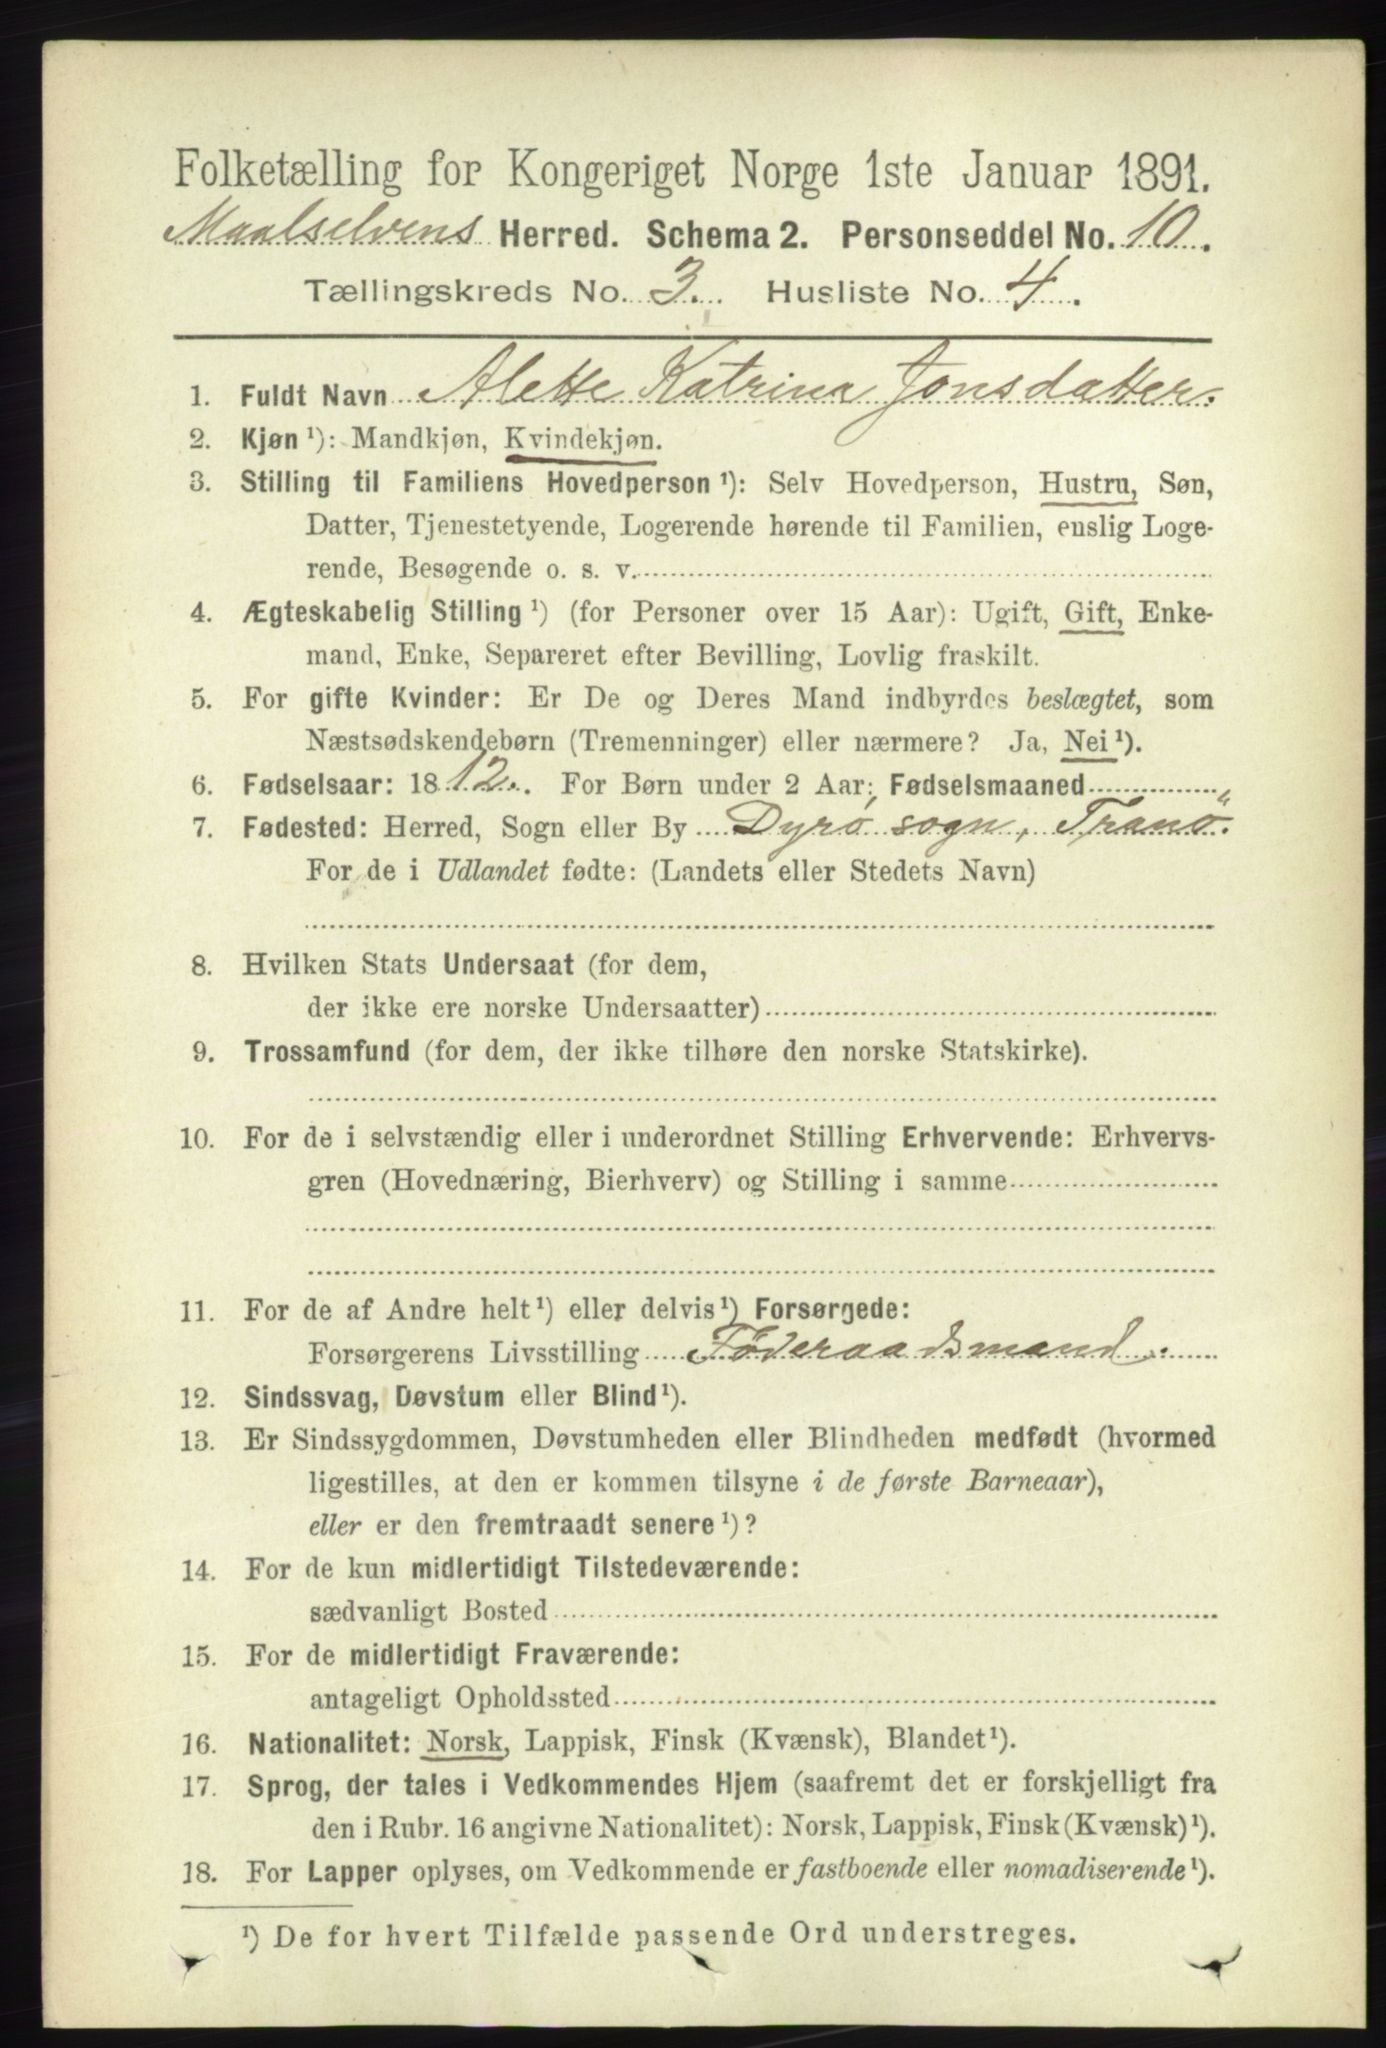 Folketælling for Kongeriget Norge 1ste Januar 1891.
Maalselvens Herred. Schema 2. Personseddel No. 10.
Tællingskreds No. 3. Husliste No. 4.
1. Fuldt Navn Alette Katrina Jonsdatter.
2. Kjøn ¹): Mandkjøn, Kvindekjøn.
3. Stilling til Familiens Hovedperson ¹): Selv Hovedperson, Hustru, Søn,
Datter, Tjenestetyende, Logerende hørende til Familien, enslig Loge-
rende, Besøgende o. s. v.
4. Ægteskabelig Stilling ¹) (for Personer over 15 Aar): Ugift, Gift, Enke-
mand, Enke, Separeret efter Bevilling, Lovlig fraskilt.
5. For gifte Kvinder: Er De og Deres Mand indbyrdes beslægtet, som
Næstsødskendebørn (Tremenninger) eller nærmere? Ja, Nei ¹).
6. Fødselsaar: 1812. For Børn under 2 Aar: Fødselsmaaned
7. Fødested: Herred, Sogn eller By Dyrö sogn, Tranö.
For de i Udlandet fødte: (Landets eller Stedets Navn)
8. Hvilken Stats Undersaat (for dem,
der ikke ere norske Undersaatter)
9. Trossamfund (for dem, der ikke tilhøre den norske Statskirke).
10. For de i selvstændig eller i underordnet Stilling Erhvervende: Erhvervs-
gren (Hovednæring, Bierhverv) og Stilling i samme
11. For de af Andre helt ¹) eller delvis ¹) Forsørgede:
Forsørgerens Livsstilling Føderaadsmand.
12. Sindssvag, Døvstum eller Blind ¹).
13. Er Sindssygdommen, Døvstumheden eller Blindheden medfødt (hvormed
ligestilles, at den er kommen tilsyne i de første Barneaar),
eller er den fremtraadt senere ¹)?
14. For de kun midlertidigt Tilstedeværende:
sædvanligt Bosted
15. For de midlertidigt Fraværende:
antageligt Opholdssted
16. Nationalitet: Norsk, Lappisk, Finsk (Kvænsk), Blandet ¹).
17. Sprog, der tales i Vedkommendes Hjem (saafremt det er forskjelligt fra
den i Rubr. 16 angivne Nationalitet): Norsk, Lappisk, Finsk (Kvænsk) ¹).
18. For Lapper oplyses, om Vedkommende er fastboende eller nomadiserende ¹).
¹) De for hvert Tilfælde passende Ord understreges.